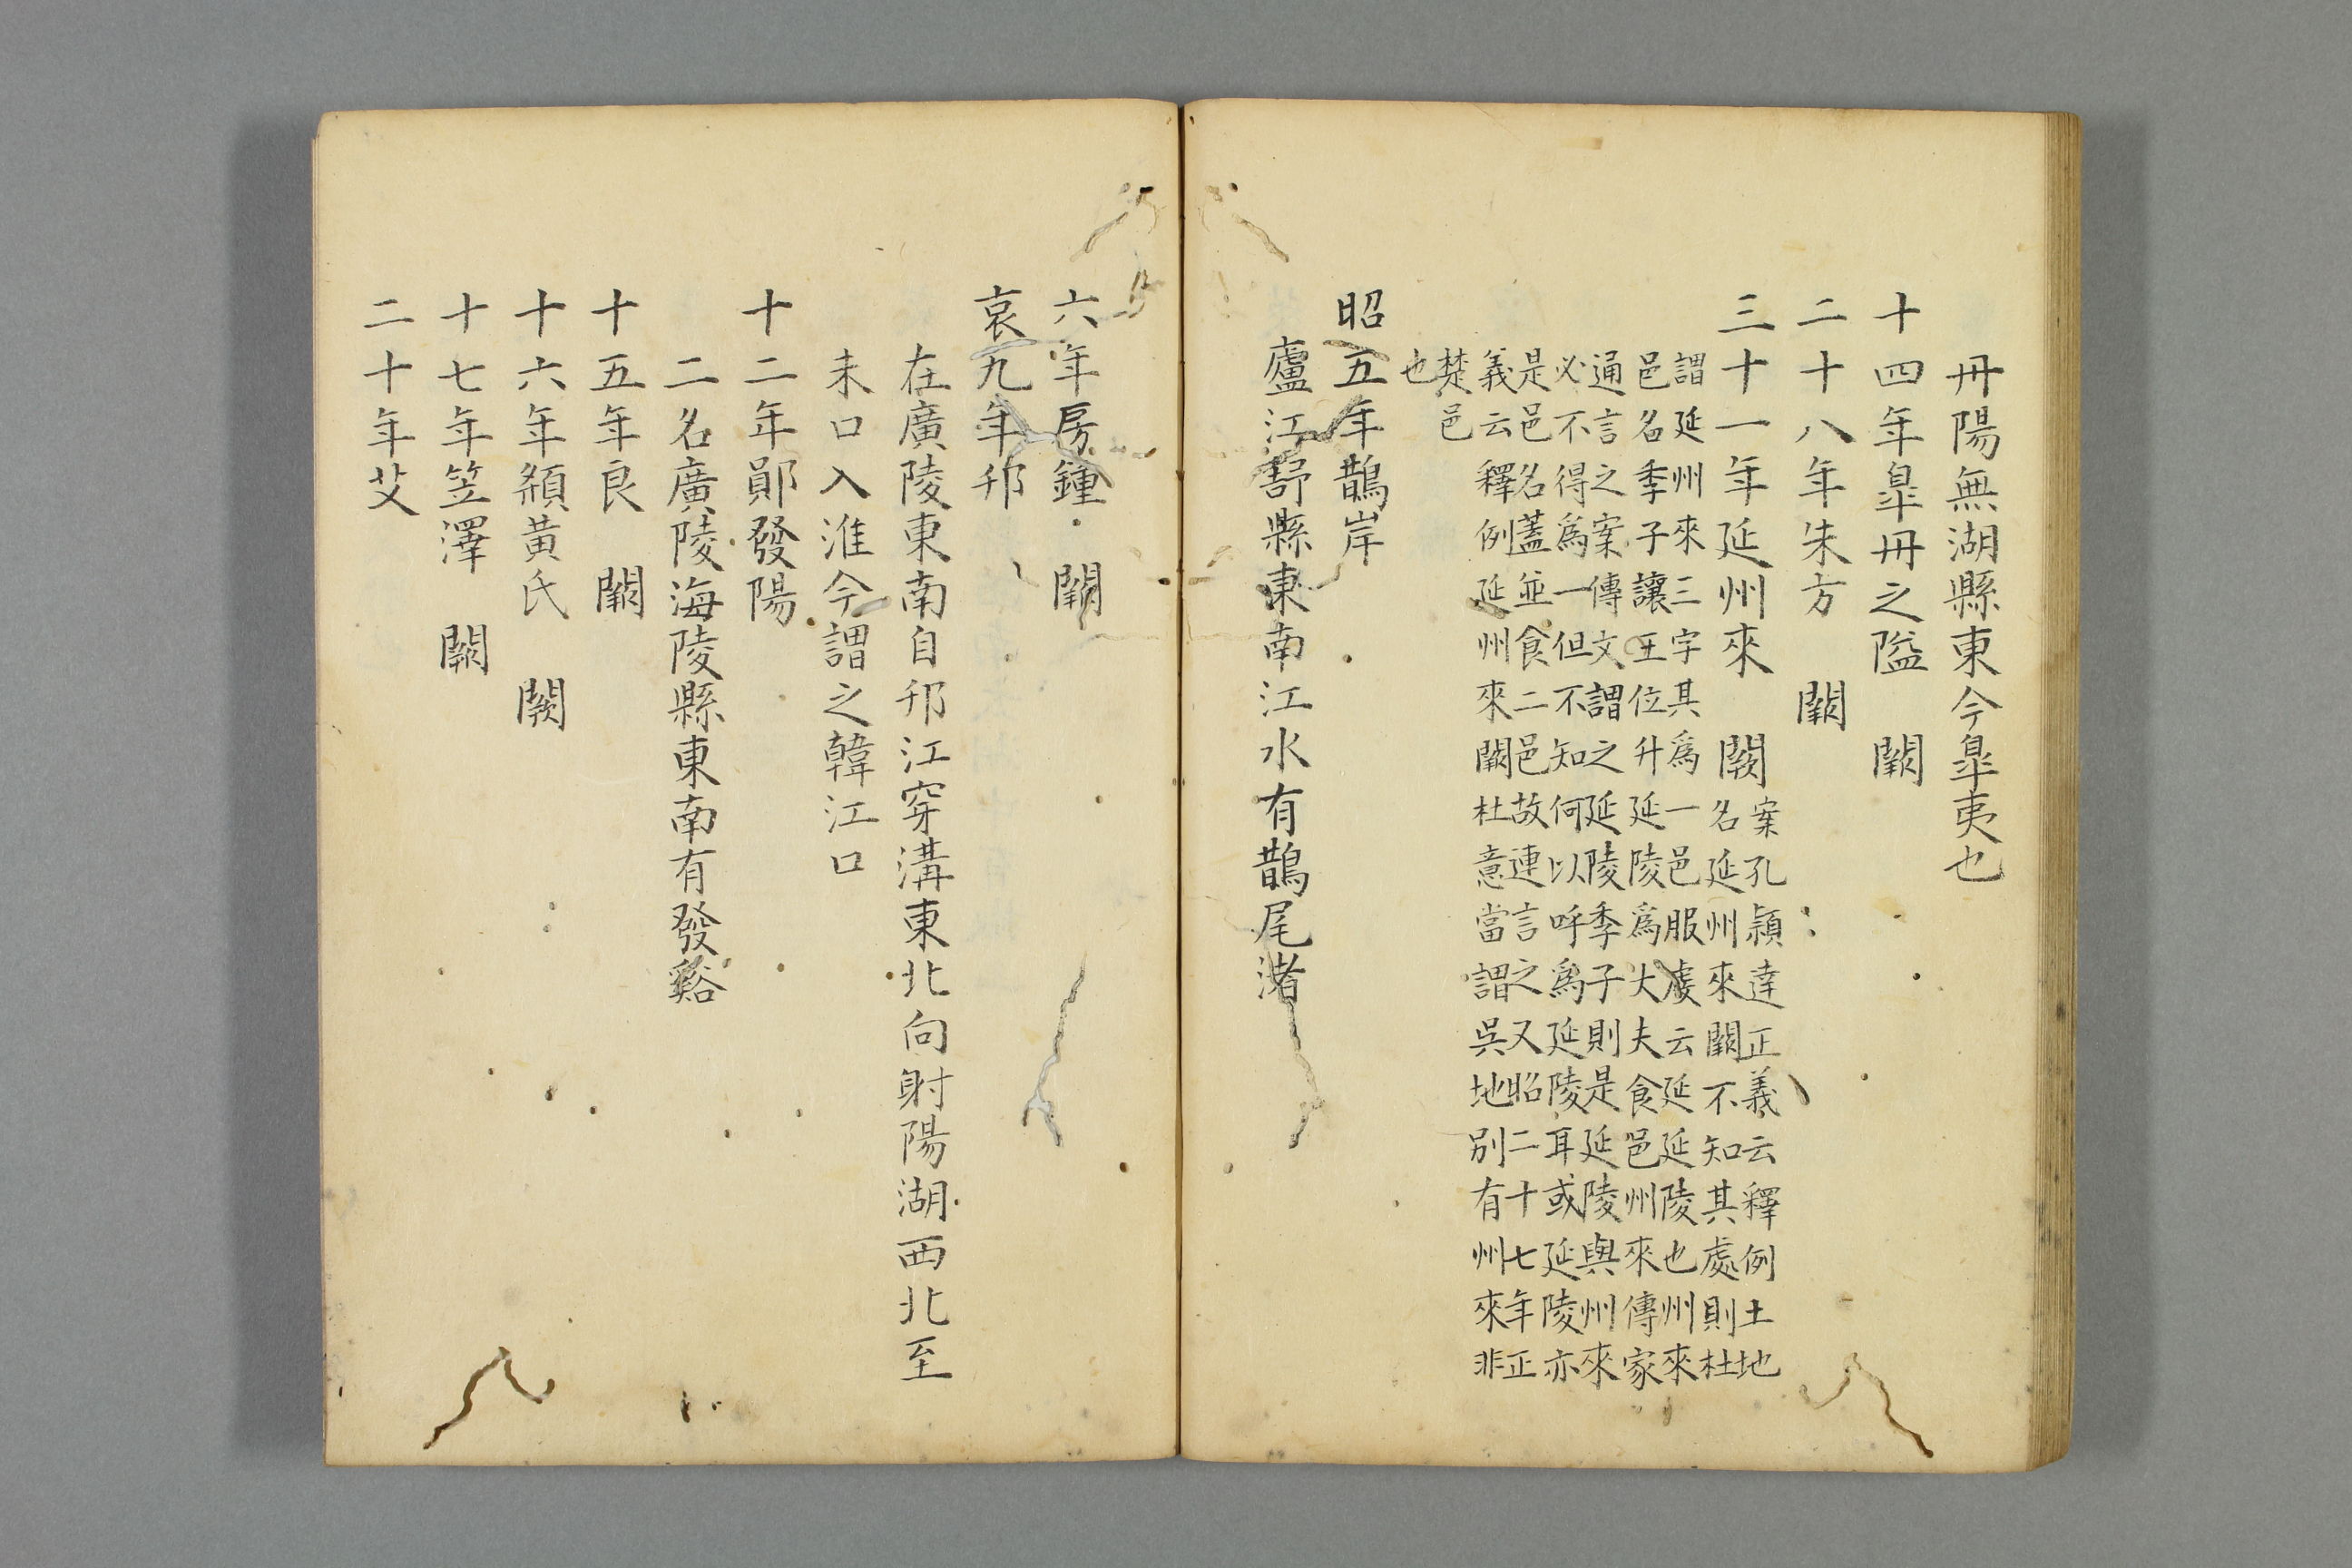 丹陽無湖縣東今臯夷也
十四年臯丹之隘　闕
二十八年朱方　闕
三十一年延州來　闕
案孔穎達正義云釋例土地
名延州來闕不知其處則杜
謂延州來三字其爲一邑服虔云延延陵也州來
邑名季子讓王位升延陵爲大夫食邑州來傳家
通言之案傳文謂之延陵季子則是延陵與州來
必不得爲一但不知何以呼爲延陵耳或延陵亦
是邑名蓋並食二邑故連言之又昭二十七年正
義云釋例延州來闕杜意當謂吳地別有州來非
楚邑
也
昭五年鵲岸
廬江舒縣東南江水有鵲尾渚
六年房鍾　闕
哀九年邗
在廣陵東南自邗江穿溝東北向射陽湖西北至
未口入淮今謂之韓江口
十二年鄖發陽
二名廣陵海陵縣東南有發谿
十五年良　闕
十六年頟黄氏　闕
十七年笠澤　闕
二十年艾